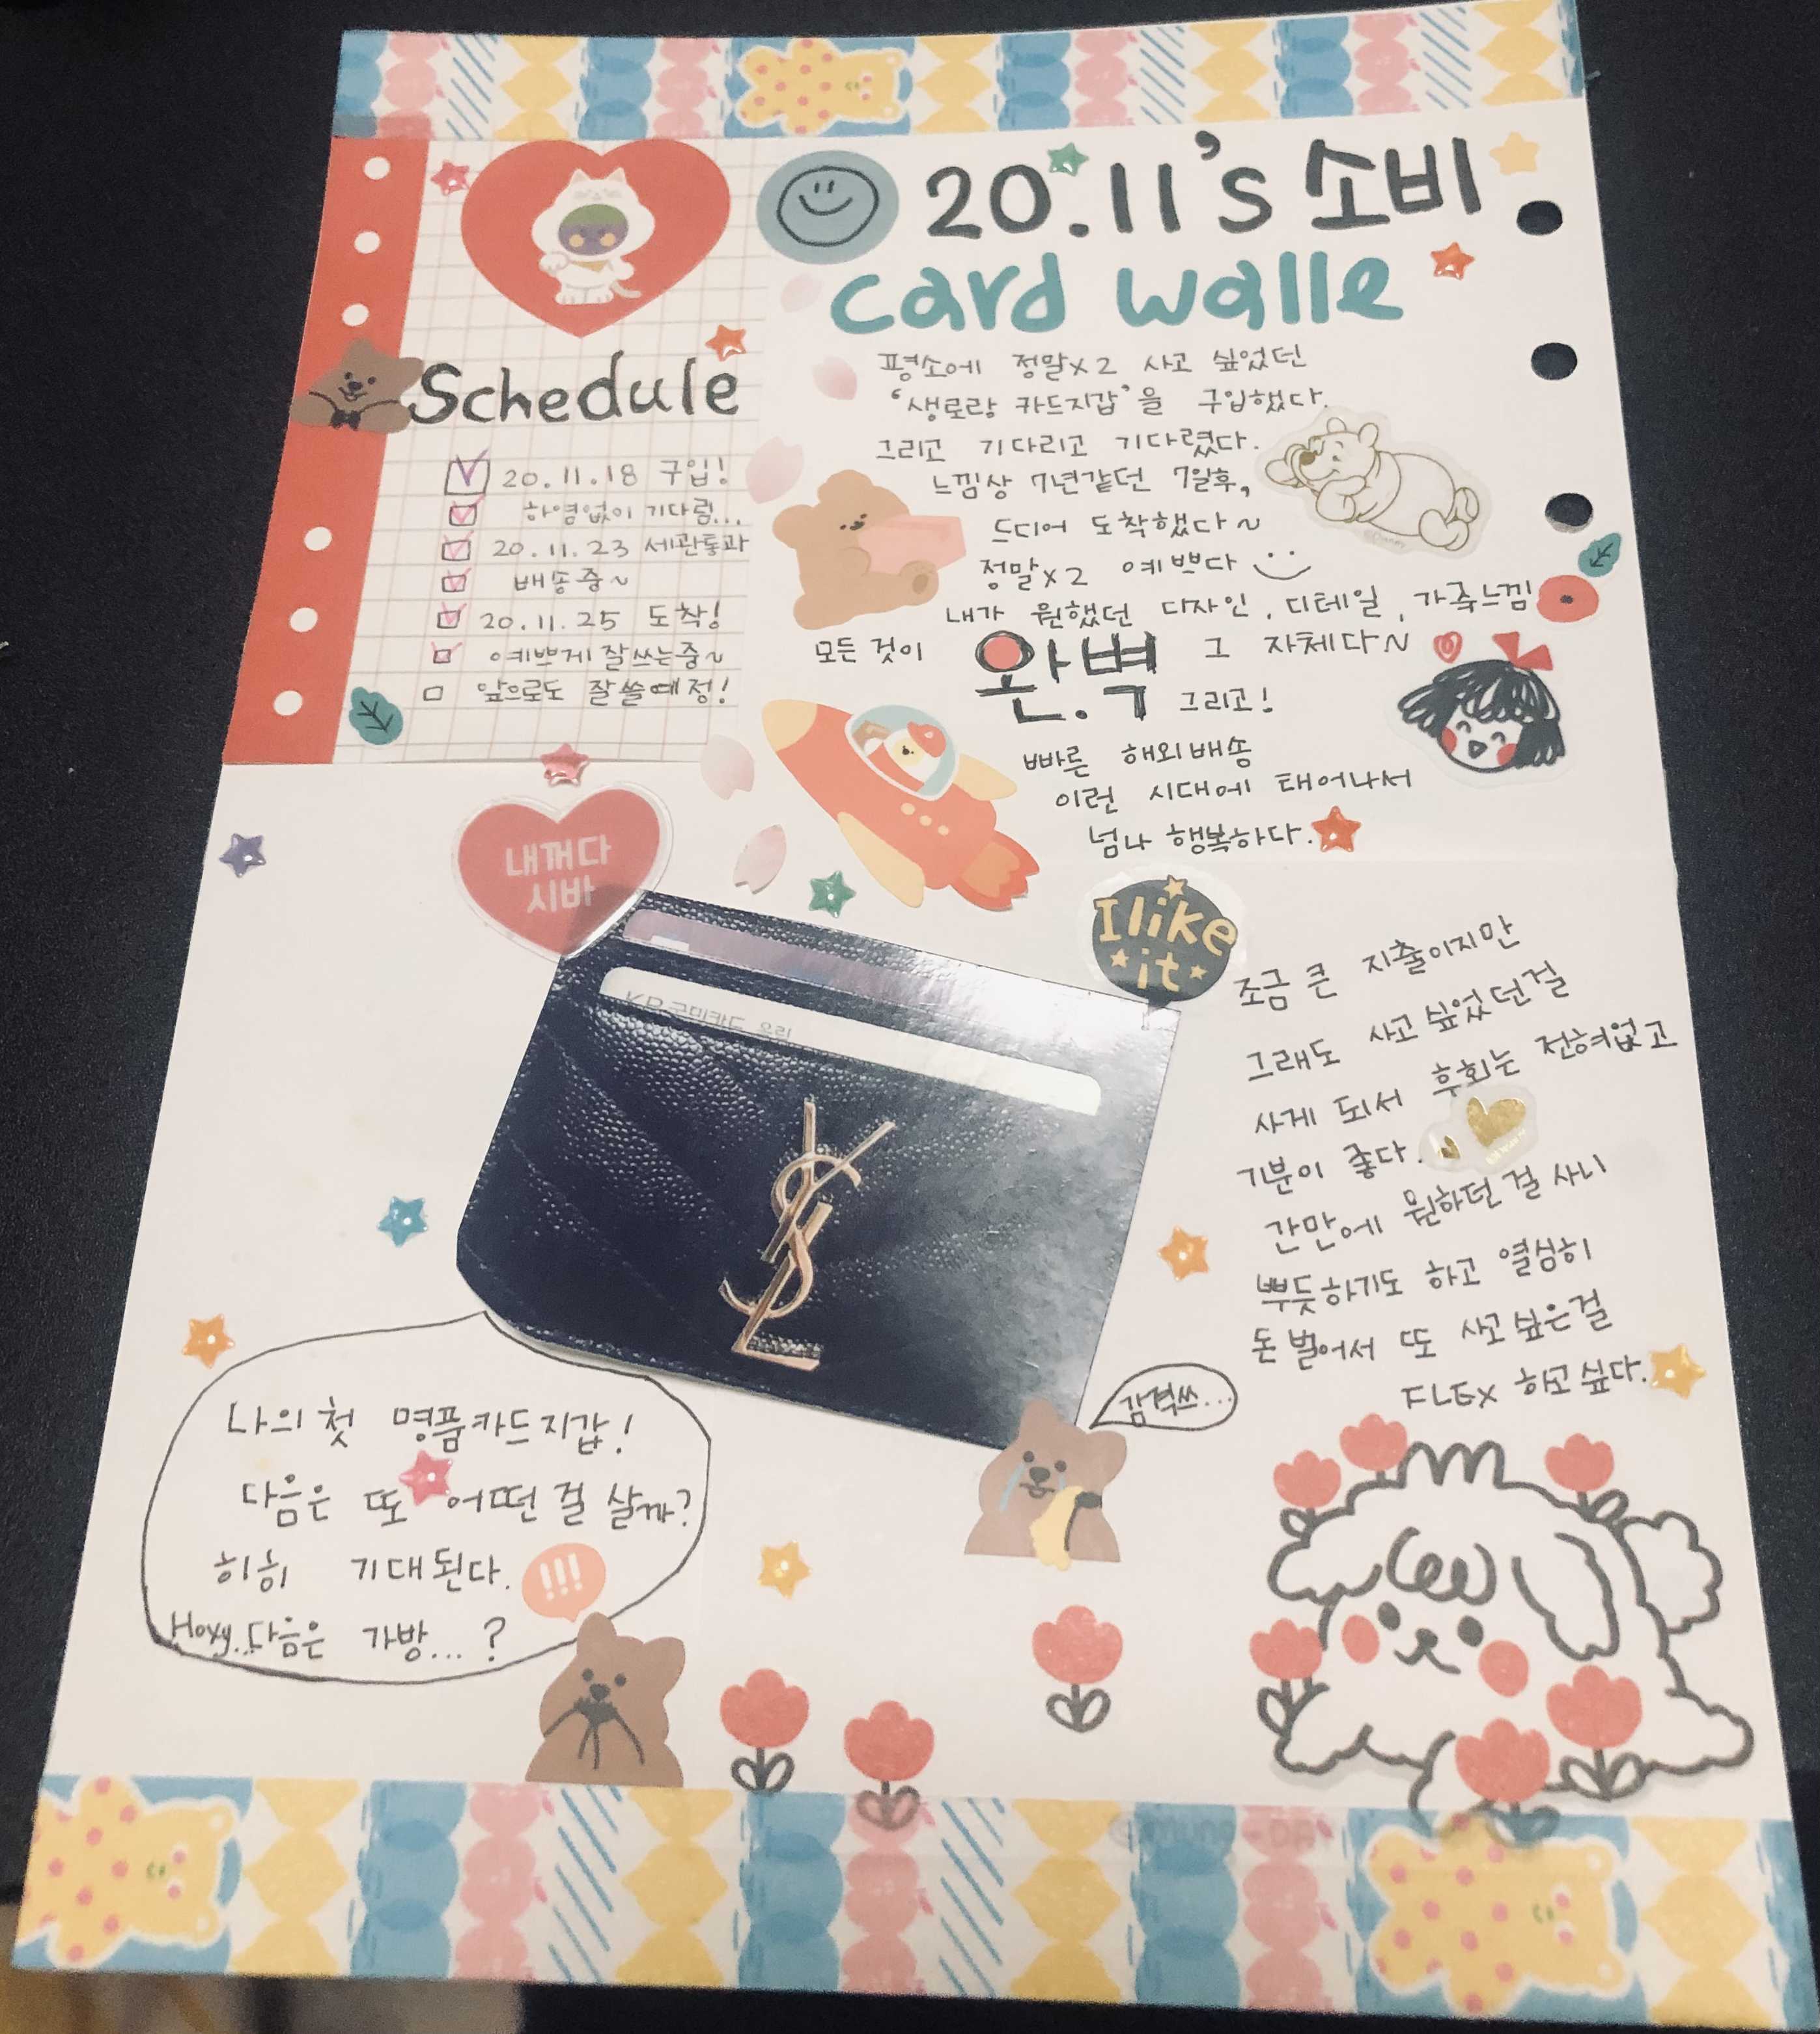 20.11's 소비
card walle
Schedule
20.11.18 구입!
하염없이 기다림...
20.11.23 세관통과
배송중~
20.11.25 도착!
예쁘게 잘쓰는중~
앞으로도 잘쓸예정!
평소에 정말x2 사고 싶었던
'생로랑 카드지갑'을 구입했다.
그리고 기다리고 기다렸다.
느낌상 7년같던 7일후,
드디어 도착했다~
정말x2 예쁘다
내가 원했던 디자인, 디테일, 가죽느낌
모든 것이 완.벽 그 자체다~
그리고!
빠른 해외배송
이런 시대에 태어나서
넘나 행복하다.
내꺼다
시바
I like
it
조금 큰 지출이지만
그래도 사고 싶었던걸
사게 되서 후회는 전혀없고
기분이 좋다.
간만에 원하던 걸 사니
뿌듯하기도 하고 열심히
돈 벌어서 또 사고 싶은걸
FLEX 하고 싶다.
KB국민카드
YSL
감격쓰...
나의 첫 명품카드지갑!
다음은 또 어떤 걸 살까?
히히 기대된다.
!!!
Hoxy..다음은 가방...?